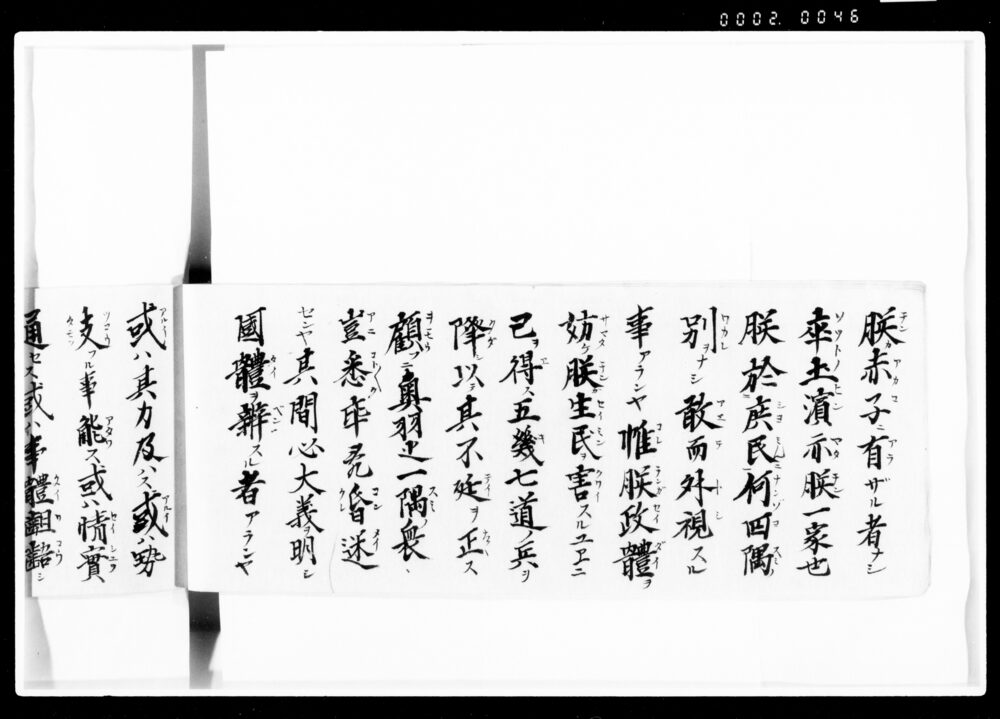 0002. 0046
朕赤子ニ有ザル者ナシ
率土濱亦朕一家也
朕於庶民何四隅
別ヲナシ敢而外視スル
事アランヤ惟朕政體ヲ
妨ゲ朕生民ヲ害スルユヱニ
已ヲ得ス五幾七道ノ兵ヲ
降シ以テ其不廷ヲ正ス
顧フニ奥羽之一隅衆
豈悉昏迷
センヤ其間必大義ヲ明ニシ
國體ヲ辨スル者アランヤ
或ハ其力及ハス或ハ勢
支フル事能ス或ハ情實
通セス或ハ事體齟齬シ